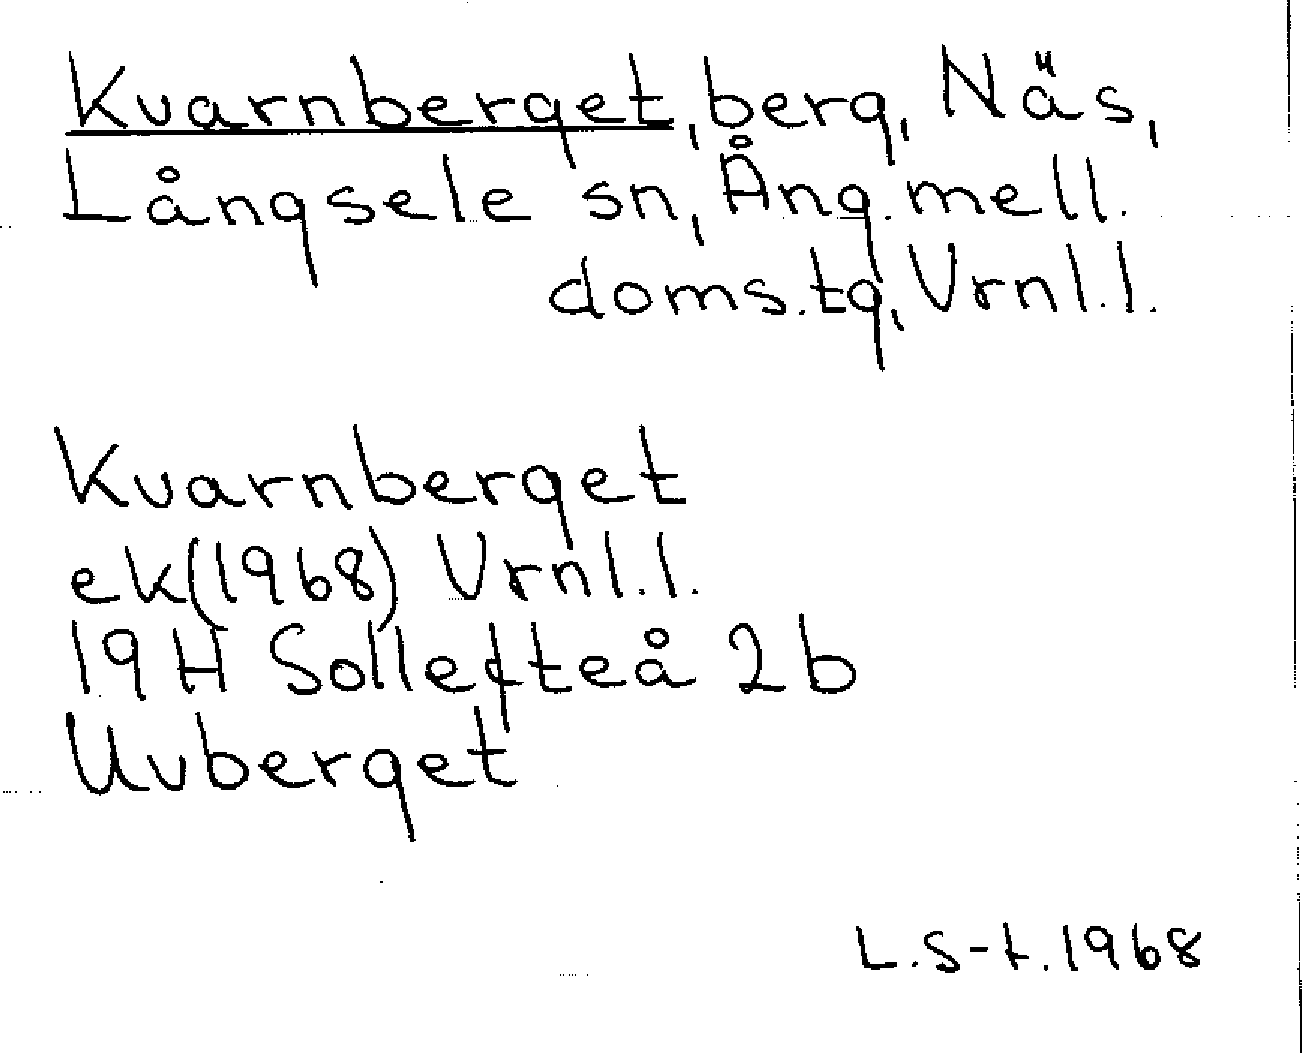 Kvarnberget, berg, Näs,
Långsele sn, Ång. mell.
doms.tg, Vrnl.l.
Kvarnberget
ek(1968) Vrnl.l.
19 H Sollefteå 2 b
Uvberget
L.S-t. 1968